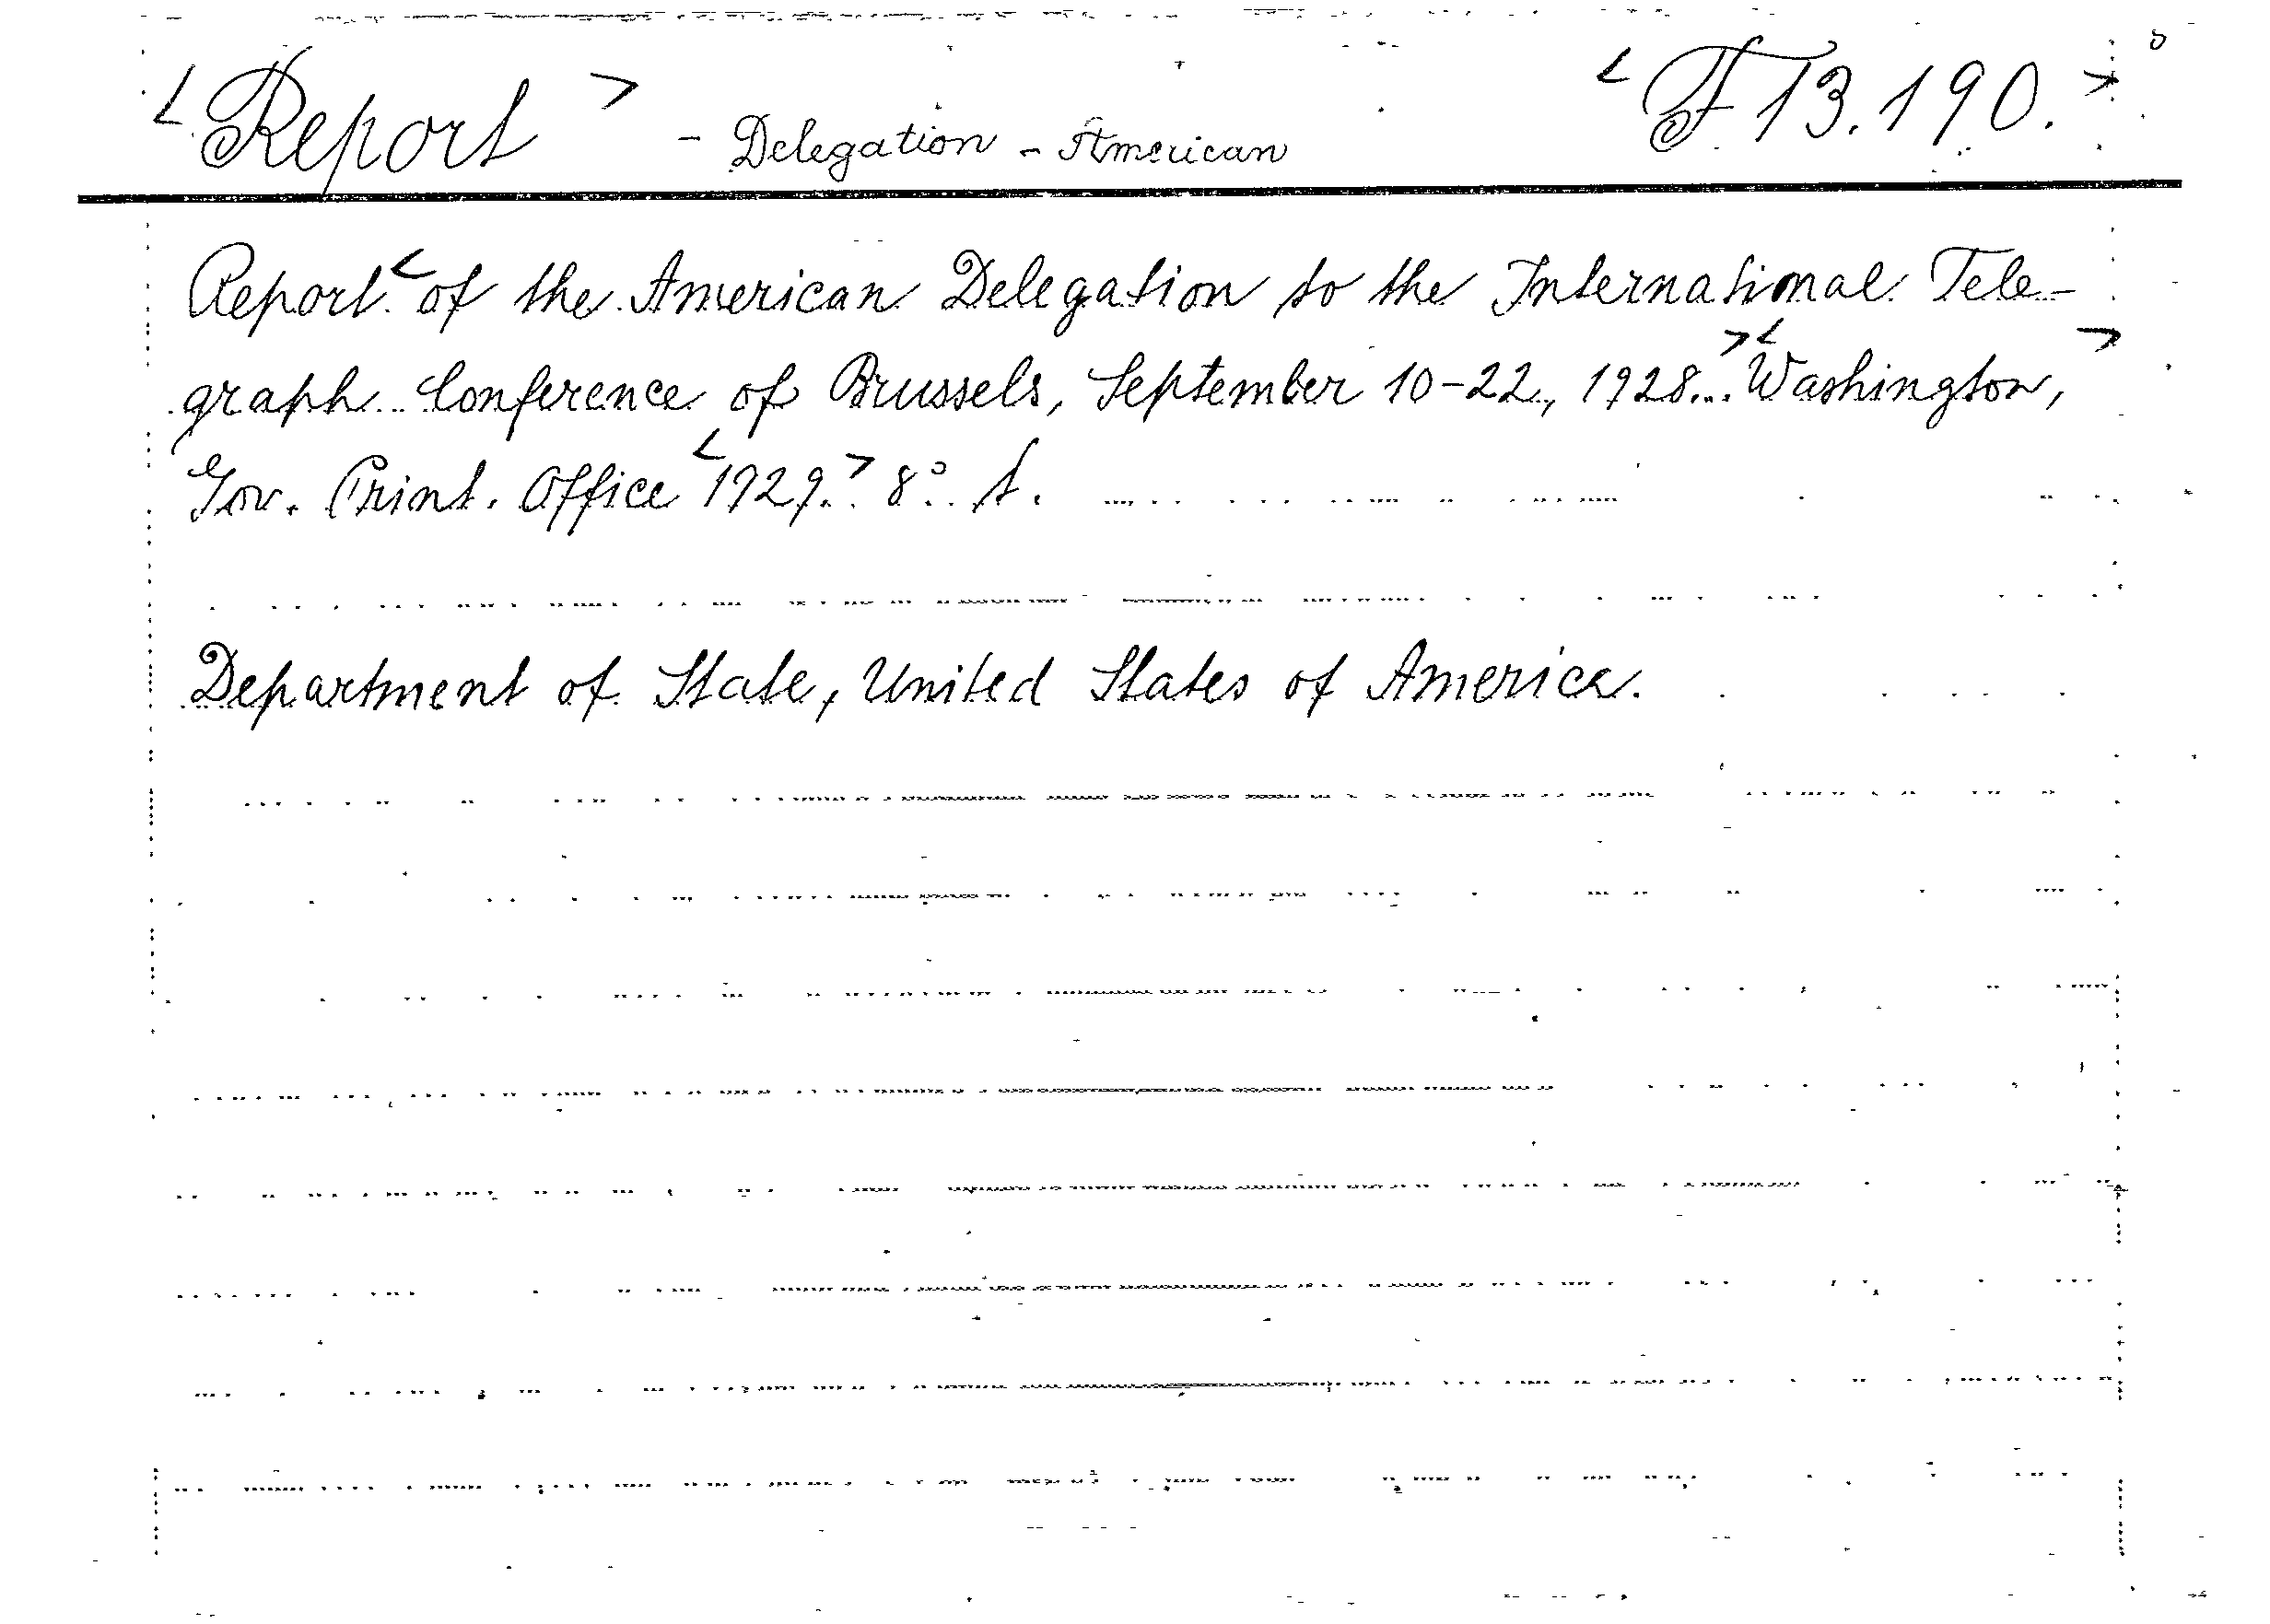 <Report> - Delegation - American <F 13.190.>
Report <of the American Delegation to the International Tele-
graph Conference of Brussels, September 10-22, 1928...> <Washington,>
Gov. Print. Office <1929.> 8°. f.
Department of State, United States of America.